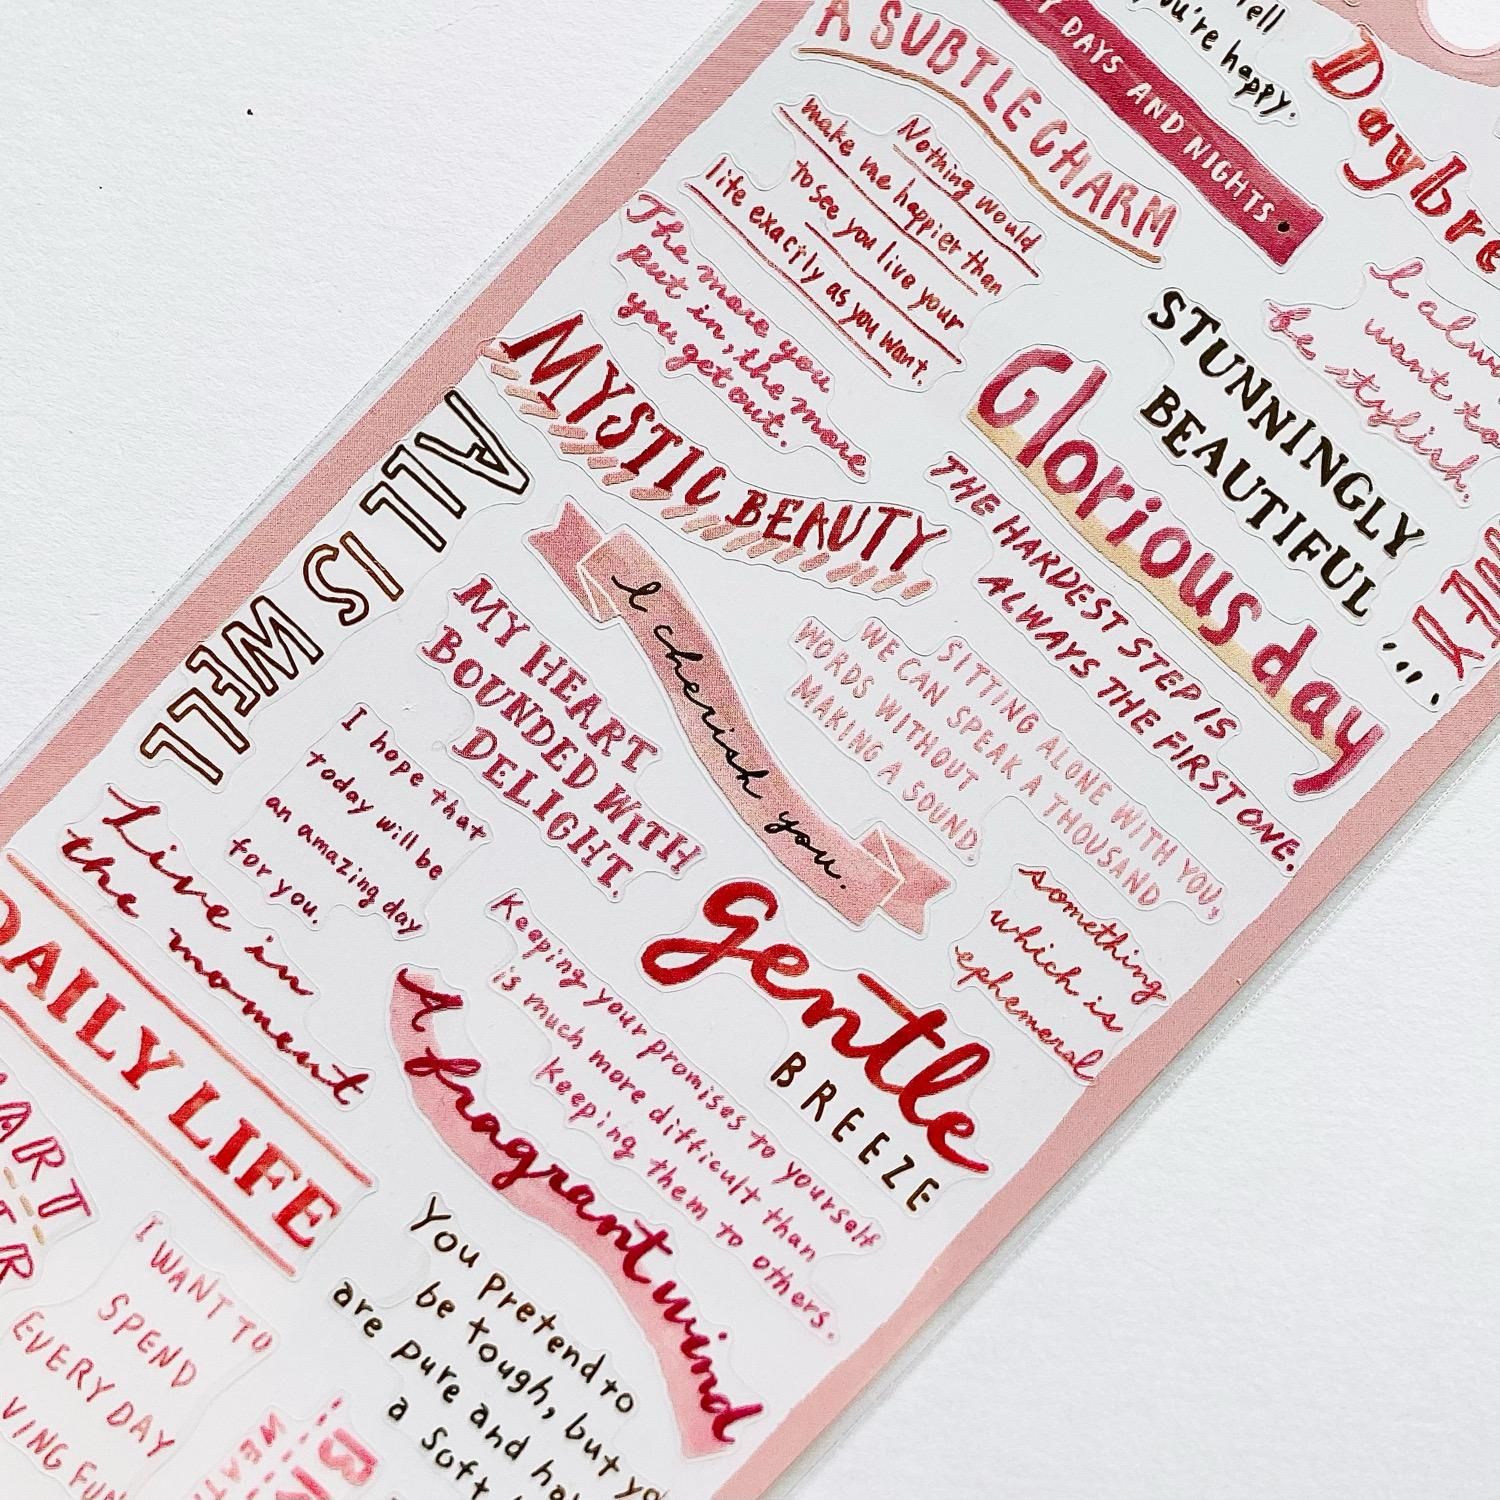 A SUBTLE CHARM
DAYS AND NIGHTS
you're happy.
Nothing would
make me happier than
to see you live your
life exactly as you want.
The more you
put in, the more
you get out.
MYSTIC BEAUTY
STUNNINGLY
BEAUTIFUL
....
I
want to
be stylish.
Glorious day
THE HARDEST STEP IS
ALWAYS THE FIRST ONE.
ALL IS WELL
I cherish you.
MY HEART
BOUNDED WITH
DELIGHT.
SITTING ALONE WITH YOU,
WE CAN SPEAK A THOUSAND
WORDS WITHOUT
MAKING A SOUND.
I hope that
today will be
an amazing day
for you.
something
which is
ephemeral
gentle
BREEZE
Live in
the moment
Keeping your promises to yourself
is much more difficult than
keeping them to others.
DAILY LIFE
A fragrant wind
You pretend to
be tough, but
are pure and
a soft
I WANT TO
SPEND
EVERY DAY